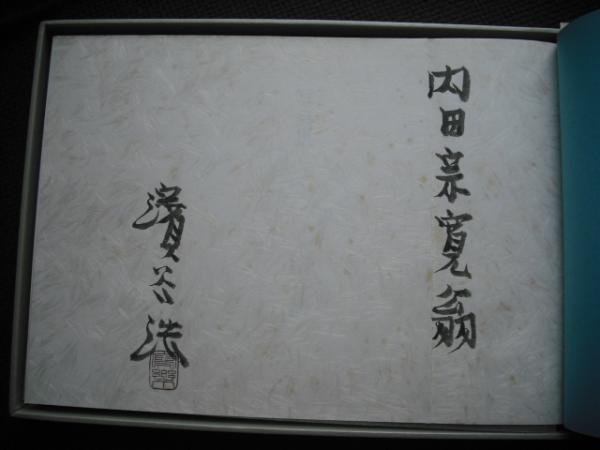 内田宗寛翁
濱谷浩